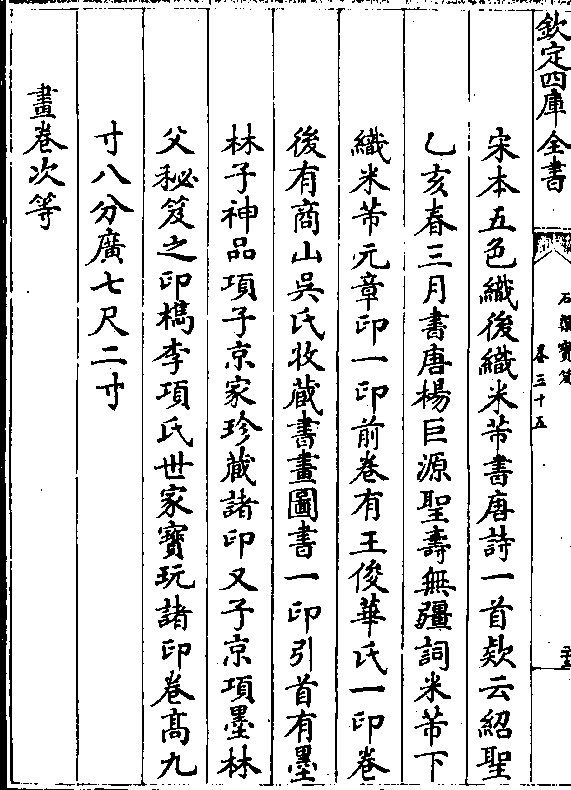 欽定四庫全書
石渠寶笈
卷三十五
宋本五色織後織米芾書唐詩一首款云紹聖
乙亥春三月書唐楊巨源聖壽無疆詞米芾下
織米芾元章印一印前卷有王俊華氏一印卷
後有商山吳氏收藏書畫圖書一印引首有墨
林子神品項子京家珍藏諸印又子京項墨林
父秘笈之印檇李項氏世家寶玩諸印卷高九
寸八分廣七尺二寸
畫卷次等